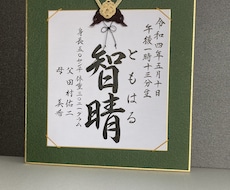 令和四年五月十日
午後一時十三分生
ともはる
智晴
身長五〇センチ 体重三〇二一グラム
父 田村佑二
母 美希